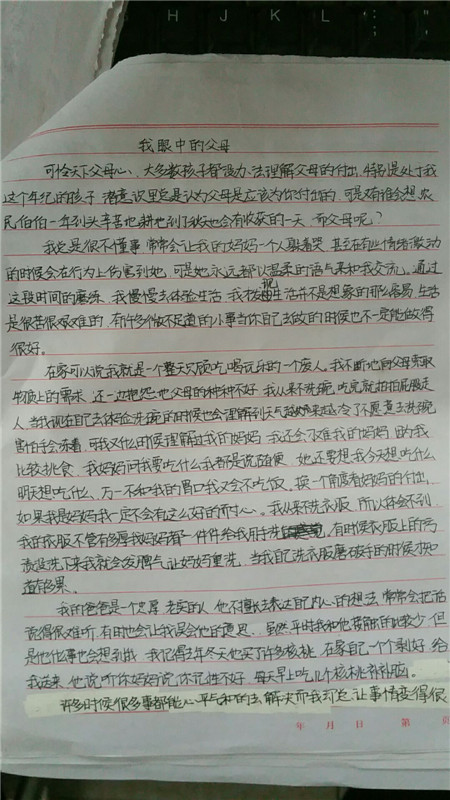 H J K L
我眼中的父母
可怜天下父母心、大多数孩子都没办法理解父母的付出,特别是处于我
这个年纪的孩子 潜意识里总是认为父母是应该为你付出的,可是有谁会想,农
民伯伯一年到头辛苦也耕地到了秋天也会有收获的一天 而父母呢?
我总是很不懂事 常常会让我的妈妈一个人躲着哭 甚至在有些情绪激动
的时候会在行为上伤害到她,可是她永远都以温柔的语气来和我交流。通过
这段时间的磨练,我慢慢去体验生活,我发现生活并不是想象的那么容易,生活
是很苦很艰难的,有许多微不足道的小事当你自己去做的时候也不一定能做得
很好。
在家可以说我就是一个整天只顾吃喝玩乐的一个废人。我不断地向父母索取
物质上的需求 还一边抱怨 也父母的种种不好 我从来不洗碗,吃完就拍拍屁股走
人 当我现在自己去体验洗碗的时候也会理解到天气越来越冷了不愿意去洗碗
害怕手会冻着,可我又什么时候理解过我的妈妈,我还会刁难我的妈妈 因为我
比较挑食,我妈妈问我要吃什么我都是说随便,她还要想我今天想吃什么
明天想吃什么,万一不和我的胃口我又会不吃饭。换一个角度看妈妈的付出,
如果我是妈妈我一定不会有这么好的耐心。我从来不洗衣服,所以将会不到
我的衣服不管有多厚我妈妈都一件件给我用手洗,有时候衣服上的污
渍没洗下来我就会发脾气让妈妈重洗,当我自己洗衣服磨破手的时候才知
道有多累。
我的爸爸是一个忠厚 老实的人,他不擅长去表达自己内心的想法,常常会把话
说得很难听,有时也会让我误会他的意思,虽然平时我和他接触的比较少,但
是他做事也会想到我,我记得去年冬天他买了许多核桃,在家自己一个个剥好 给
我送来,他说听你妈妈说你记性不好,每天早上吃几个核桃补补脑。
许多时候很多事都能心平气和的去解决而我却总让事情变得很
年 月 日 第 页